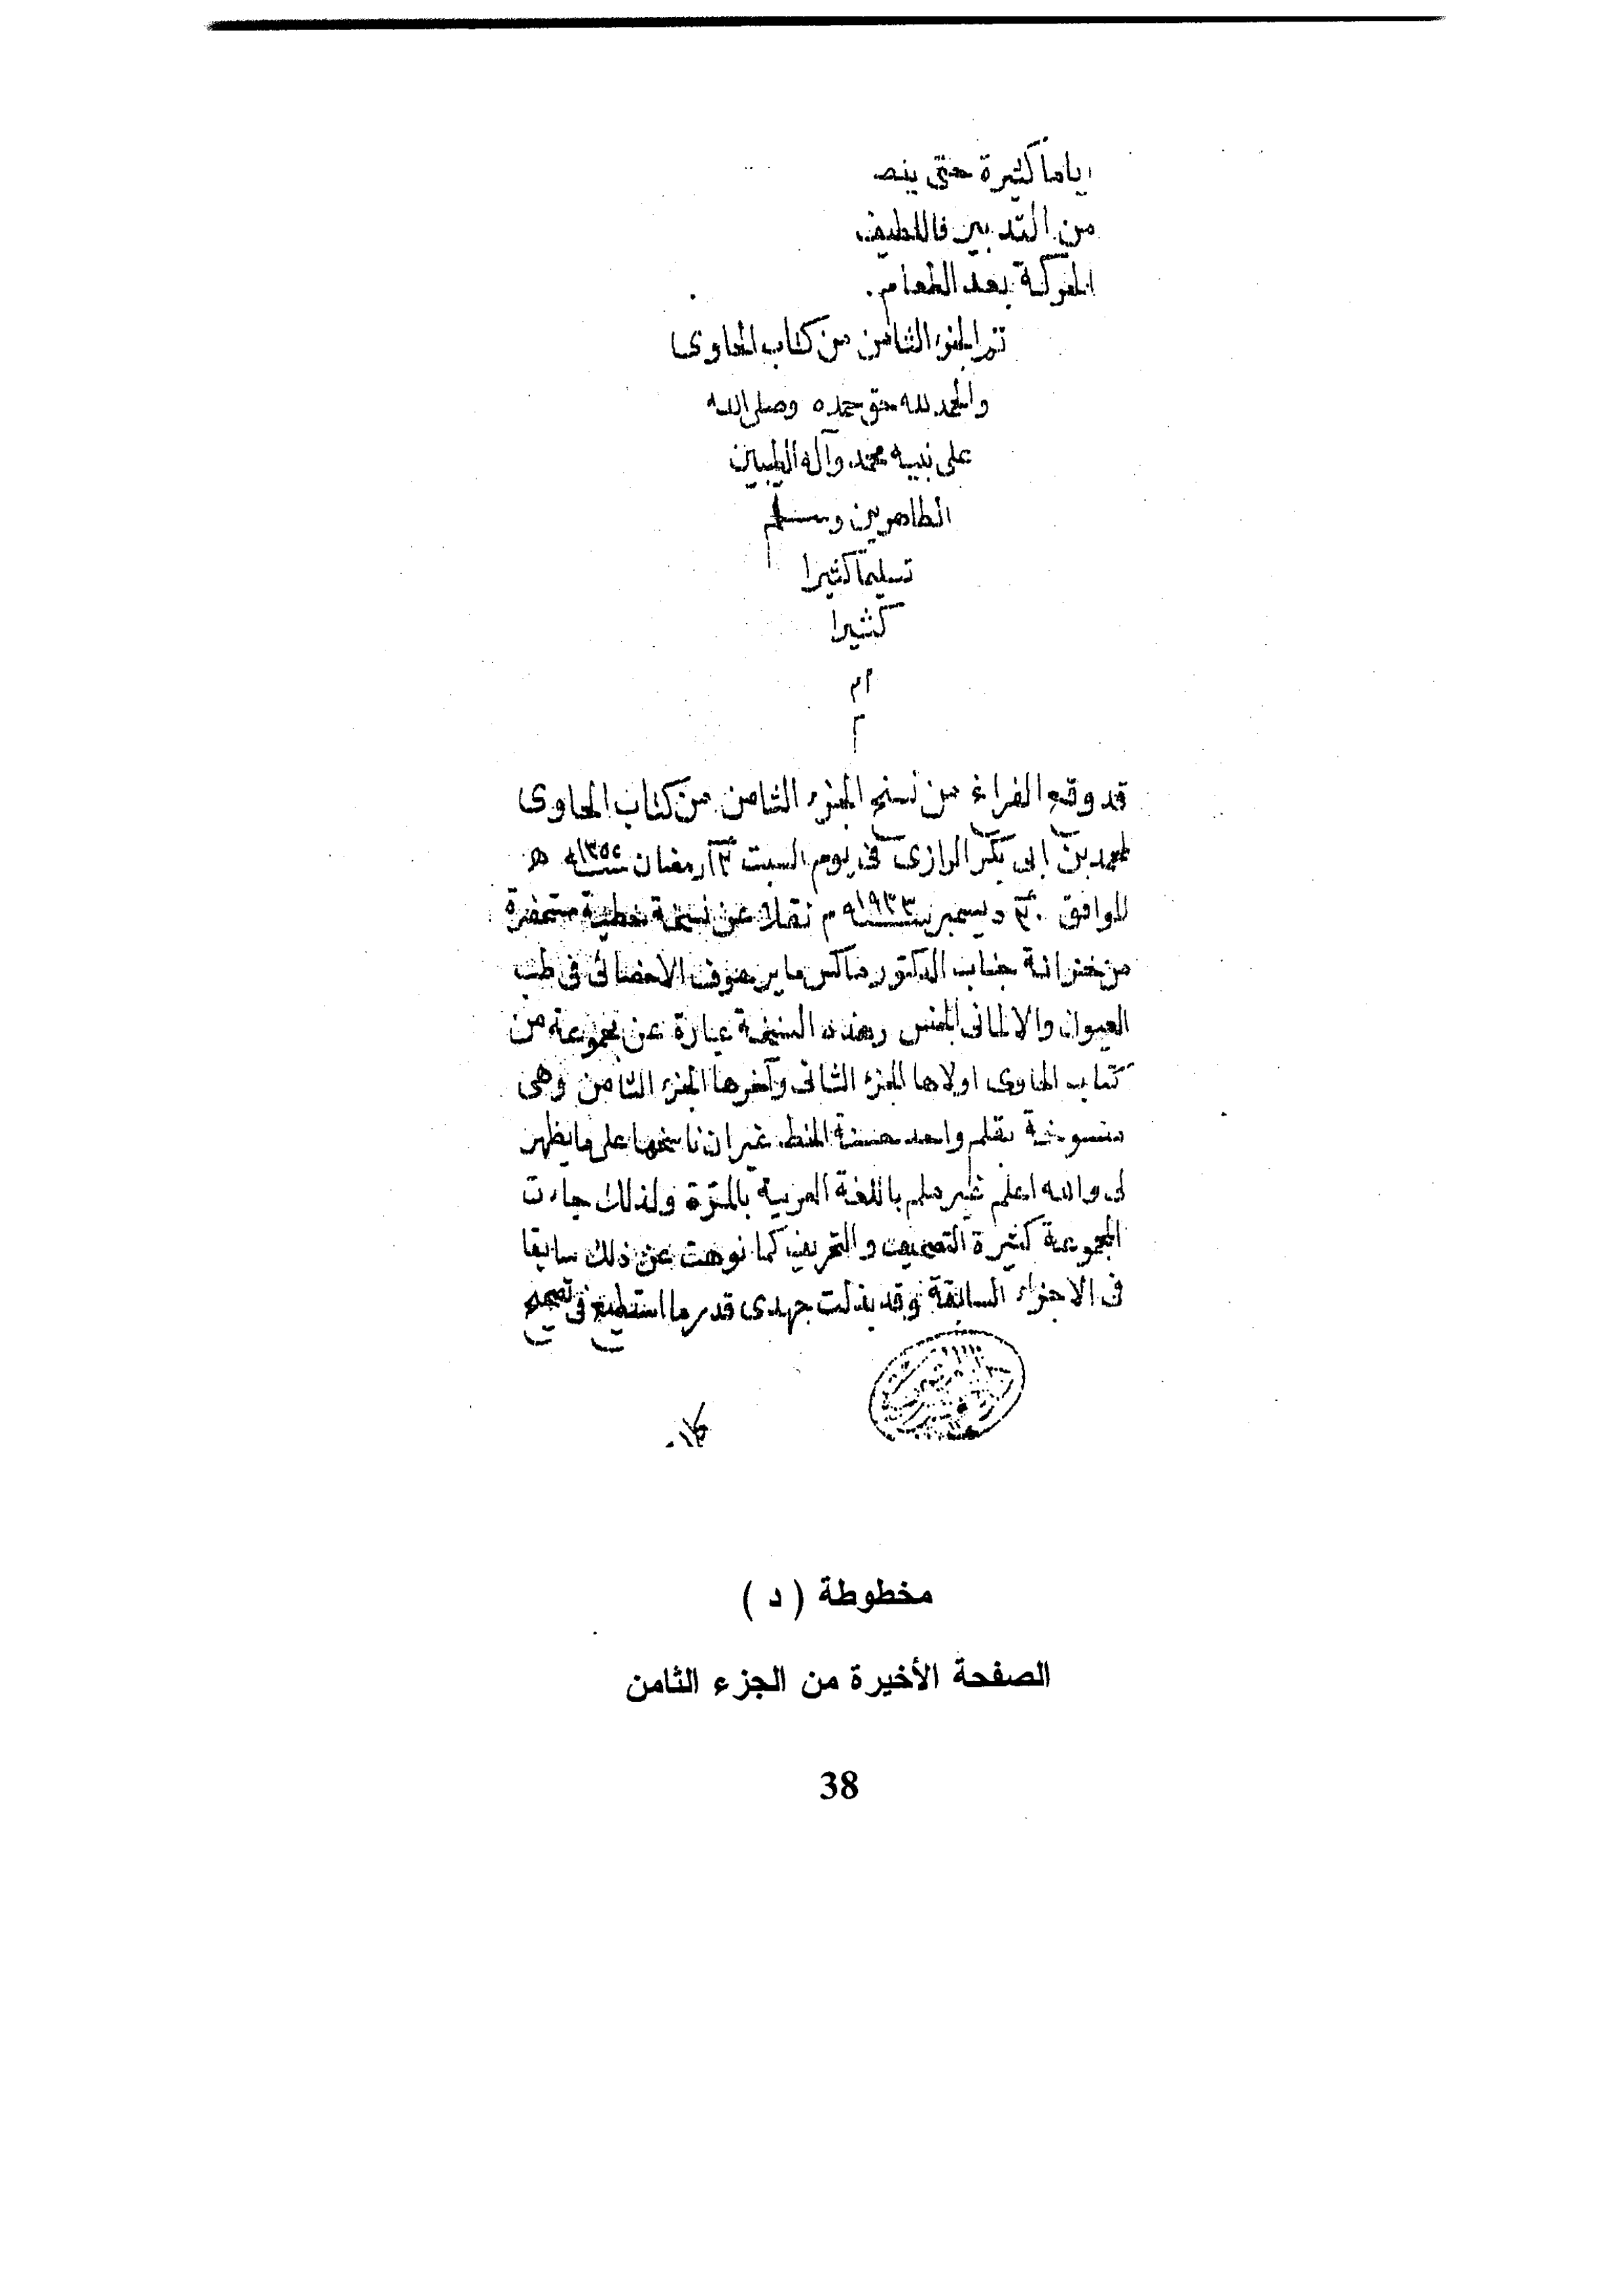 اياما كثيرة حتى ينص
من التدبير فاللطيف
الحركة بعد الطعام.
تم الجزء الثامن من كتاب الحاوى
والحمد لله حق حمده وصلى الله
على نبيه محمد وآله الطيبين
الطاهرين وسلم
تسليما كثيرا
كثيرا
قد وقع الفراغ من نسخ الجزء الثامن من كتاب الحاوى
لمحمد بن ابى بكر الرازى فى يوم السبت رمضان سنة هـ
الموافق ديسمبر سنة ١٩٣٣ م نقلا عن نسخة خطية مستحضرة
من خزانة جناب الدكتور ماكس ماير هوف الاخصائى فى طب
العيون والالمانى الجنس وهذه النسخة عبارة عن مجموعة من
كتاب الحاوى اولاها الجزء الثانى وآخرها الجزء الثامن وهى
منسوخة بقلم واحد حسنة الخط غير ان ناسخها على ما يظهر
لى والله اعلم غير ملم باللغة العربية بالمرة ولذلك جاءت
المجموعة كثيرة التصحيف والتحريف كما نوهت عن ذلك سابقا
فى الاجزاء السابقة وقد بذلت جهدى قدر ما استطيع فى تصحيح
مخطوطة ( د )
الصفحة الأخيرة من الجزء الثامن
38